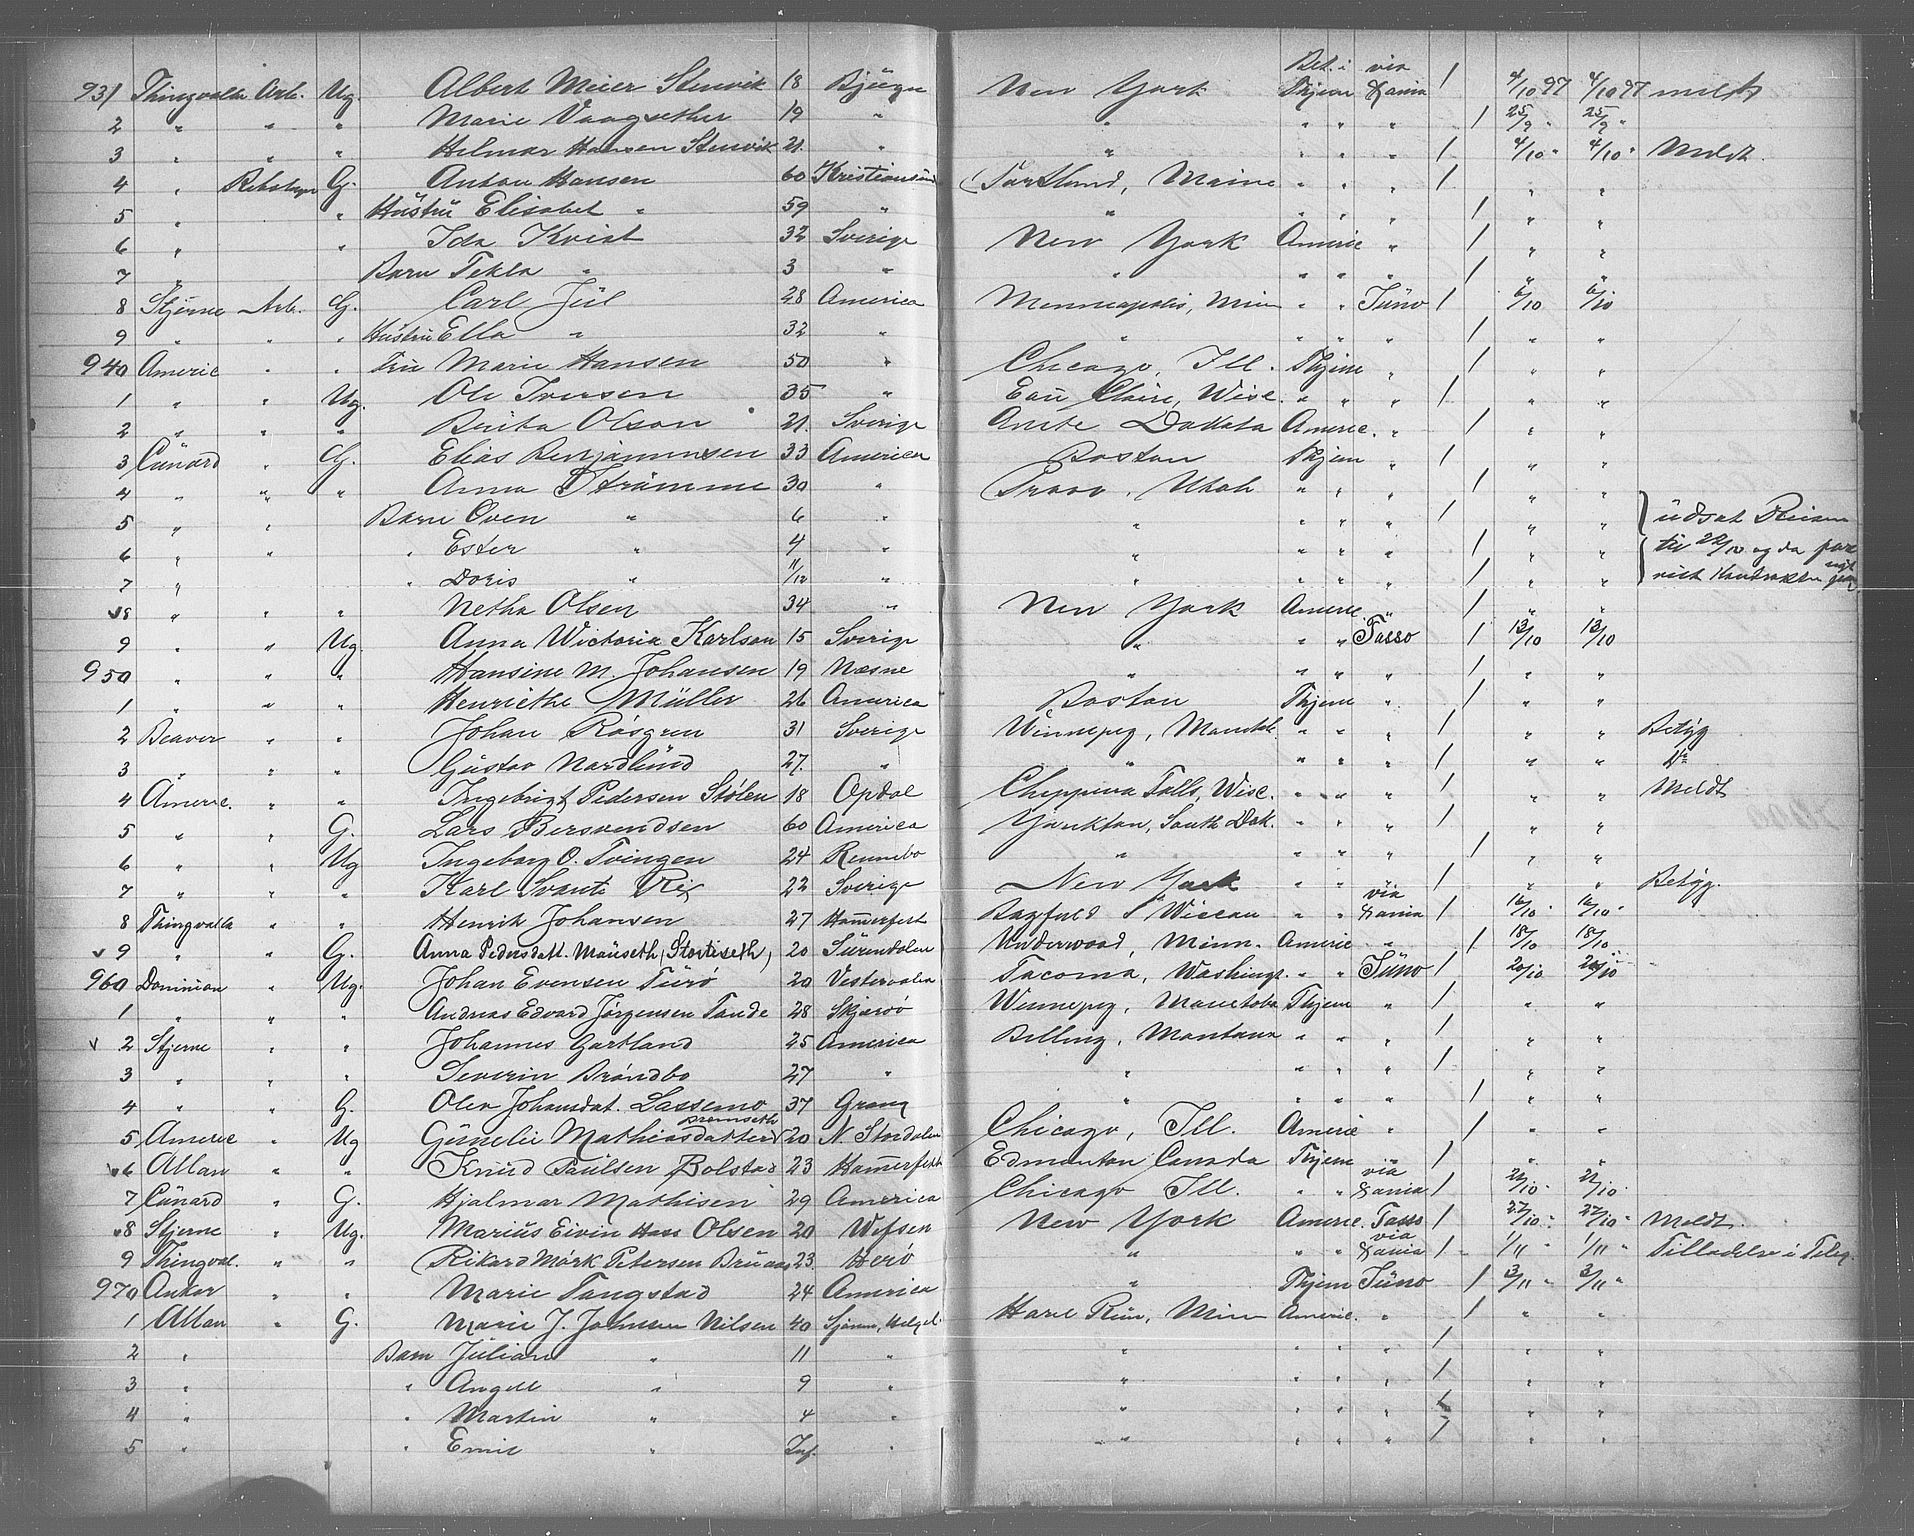 931 Thingvalla Arb. Ug. Albert Meier Stenvik 18 Bjügn New York Bet. i Thjem via Xania 1 4/10 97 4/10 97 meldt
2 " " " Marie Vaagsether 19 " " " " " 1 25/9 " 25/9 "
3 " " " Helmar Hansen Stenvik 21. " " " " " 1 4/10 " 4/10 " Meldt.
4 " G. Anton Hansen 60 Kristiansund Portland, Maine " " " 1 " "
5 " " Hüstrü Elisabet " 59 " " " " " 1 " "
6 " " Ida Kvist 32 Sverige New York Americ " 1 " "
7 " Barn Tekla " 3 " " " " " 1 " "
8 Stjerne Arb. G. Carl Jül 28 America Minneapolis, Min " " Jüno 1 6/10 6/10
9 " " " Hüstrü Ella " 32 " " " " " 1 " "
940 Americ " " Frü Marie Hansen 50 " Chicago, Ill. Thjem " 1 " "
1 " " Ug. Ole Iversen 35 " Eaü Claire, Wisc. " " " 1 " "
2 " " " Berita Olson 21. Sverige Dakota Americ. " 1 " "
3 Cünard " G. Elias Benjaminsen 33 America Boston Thjem " 1 " "
4 " " " Anna Strømme 30 " Provo, Utah " " " 1 " "
5 " " Barn Oven " 6 " " " " " 1 " " üdsat Reisen
6 " " " Ester " 4 " " " " " 1 " " til 22/10 og da
7 " " Doris " 11/12 " " " " " 1 " "
v8 " " " Netha Olsen 34 " New York Americ " 1 " "
9 " " Ug. Anna Wictoria Karlson 15 Sverige " " " Tasso 1 13/10 13/10
950 " " " Hansine M. Johansen 19 Næsne " " " " 1 " "
1 " " " Henriethe Müller 26 America Boston Thjem " 1 " "
2 Beaver " " Johan Rosgren 31 Sverige Winnepeg, Manitob. " " " 1 " " Betyg
3 " " " Güstav Nordlünd 27. " " " " " 1 " " do
4 Americ. " " Ingebrigt Pedersen Stølen 18 Opdal Cheppeva Falls, Wisc. " " " 1 " " Meldt
5 " " G. Lars Bersvendsen 60 America Yankton, South Dak. " " " 1 " "
6 " " Ug Ingeborg O. Tvingen 24 Rennebo " " " " 1 " "
7 " " " Karl Svante Rix 22 Sverige New York " " " 1 " " Betyg.
8 Thingvalla " " Henrik Johansen 27 Hammerfest " " via Xania 1 16/10 " 16/10 "
v 9 " " G. Anna Pedersdatt. Maüseth (Stortiseth) 20 Sürendalen Underwood, Minn. Americ " 1 18/10 18/10
960 Dominion " Ug. Johan Evensen Türø 20 Vesteraalen Tacoma, Washingt. " " Jüno 1 20/10 20/10
1 " " " Andreas Edvard Jørgensen Tande 28 Skjærø Winnepeg, Manetoba Thjem " 1 " "
v 2 Stjerne " " Johannes Gartland 25 America Billing, Montana " " " 1 " "
3 " " " Severin Brøndbo 27 " " " " " 1 " "
4 " " G. Olea Johansdat. Lassemo 37 Grong " " " " 1 " "
5 Americ " Ug Günelie Mathiasdatter 20 N. Stordalen Chicago, Ill. Americ " 1 " "
v6 Allan " " Knüd Paülsen Bolstad 23 Hammerfest Edmonton Canada Thjem " 1 " "
7 Cünard " G. Hjalmar Mathisen 29 America Chicago Ill. " " via Xania 1 22/10 " 22/10 "
v8 Stjerne " Ug. Mariüs Eivin Hass Olsen 20 Vefsen New York Americ. Tasso 1 27/10 " 27/10 " Meldt.
9 Thingval. " " Rikard Mørk Petersen Brüaas 23. Herø " " " via Xania 1 1/11 " 1/11 " Tilladelse i Teleg.
970 Anker " " Marie Tangstad 24 America " Thjem Jüno 1 3/11 " 3/11 "
1 Allan " G. Marie J. Johnsen Nilsen 40 Min Americ. " 1 " "
2 " Barn Jülian " 11 " " " " " 1 " "
3 " " Angell " 9 " " " " " 1 " "
4 " " Martin " 4 " " " " " 1 " "
5 " " Emil " Inf. " " " " " 1 " "